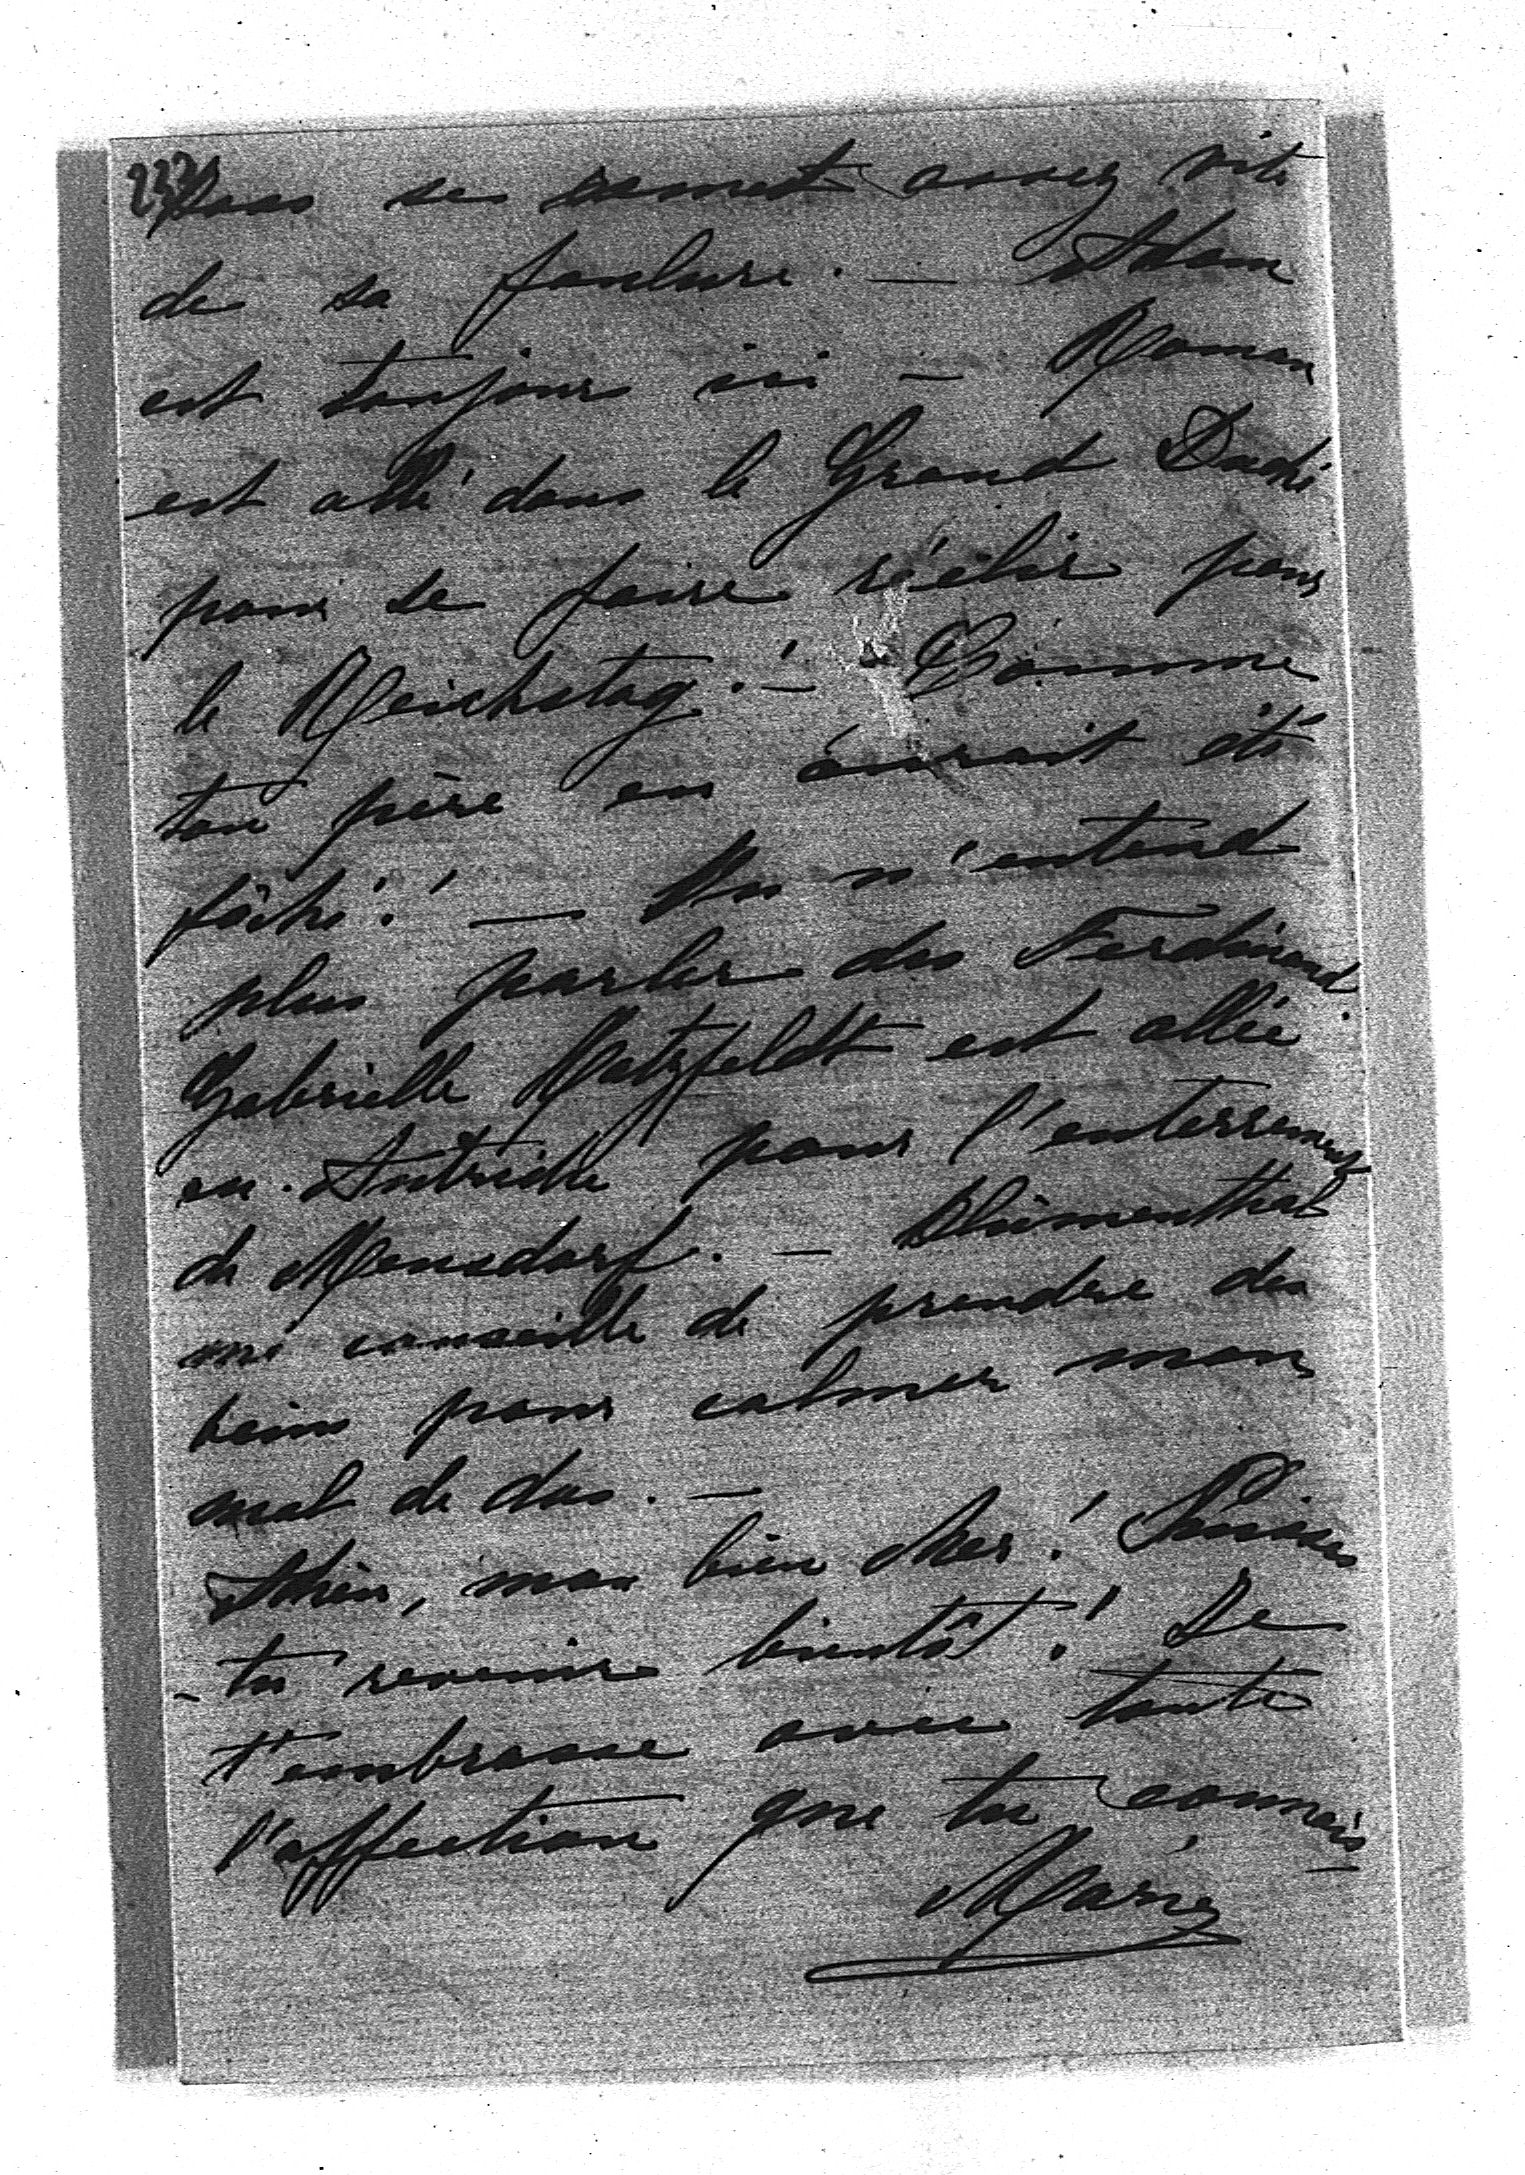 237
se remet assez vite
de sa foulure. — Adam
est toujours ici — Roman
est allé dans le Grand Duché
pour se faire réélir pour
le Reichstag! — Comme
ton père en aurait été
fâché! — On n'entend
plus parler des Ferdinand.
Gabrielle Hatzfeldt est allée
en Autriche pour l'enterrement
de Mensdorf. — Blumenthal
me conseille de prendre des
bains pour calmer mon
mal de dos. —
Adieu, mon bien cher! Puisses
-tu revenir bientôt! Je
t'embrasse avec toute
l'affection que tu connais —
Marie